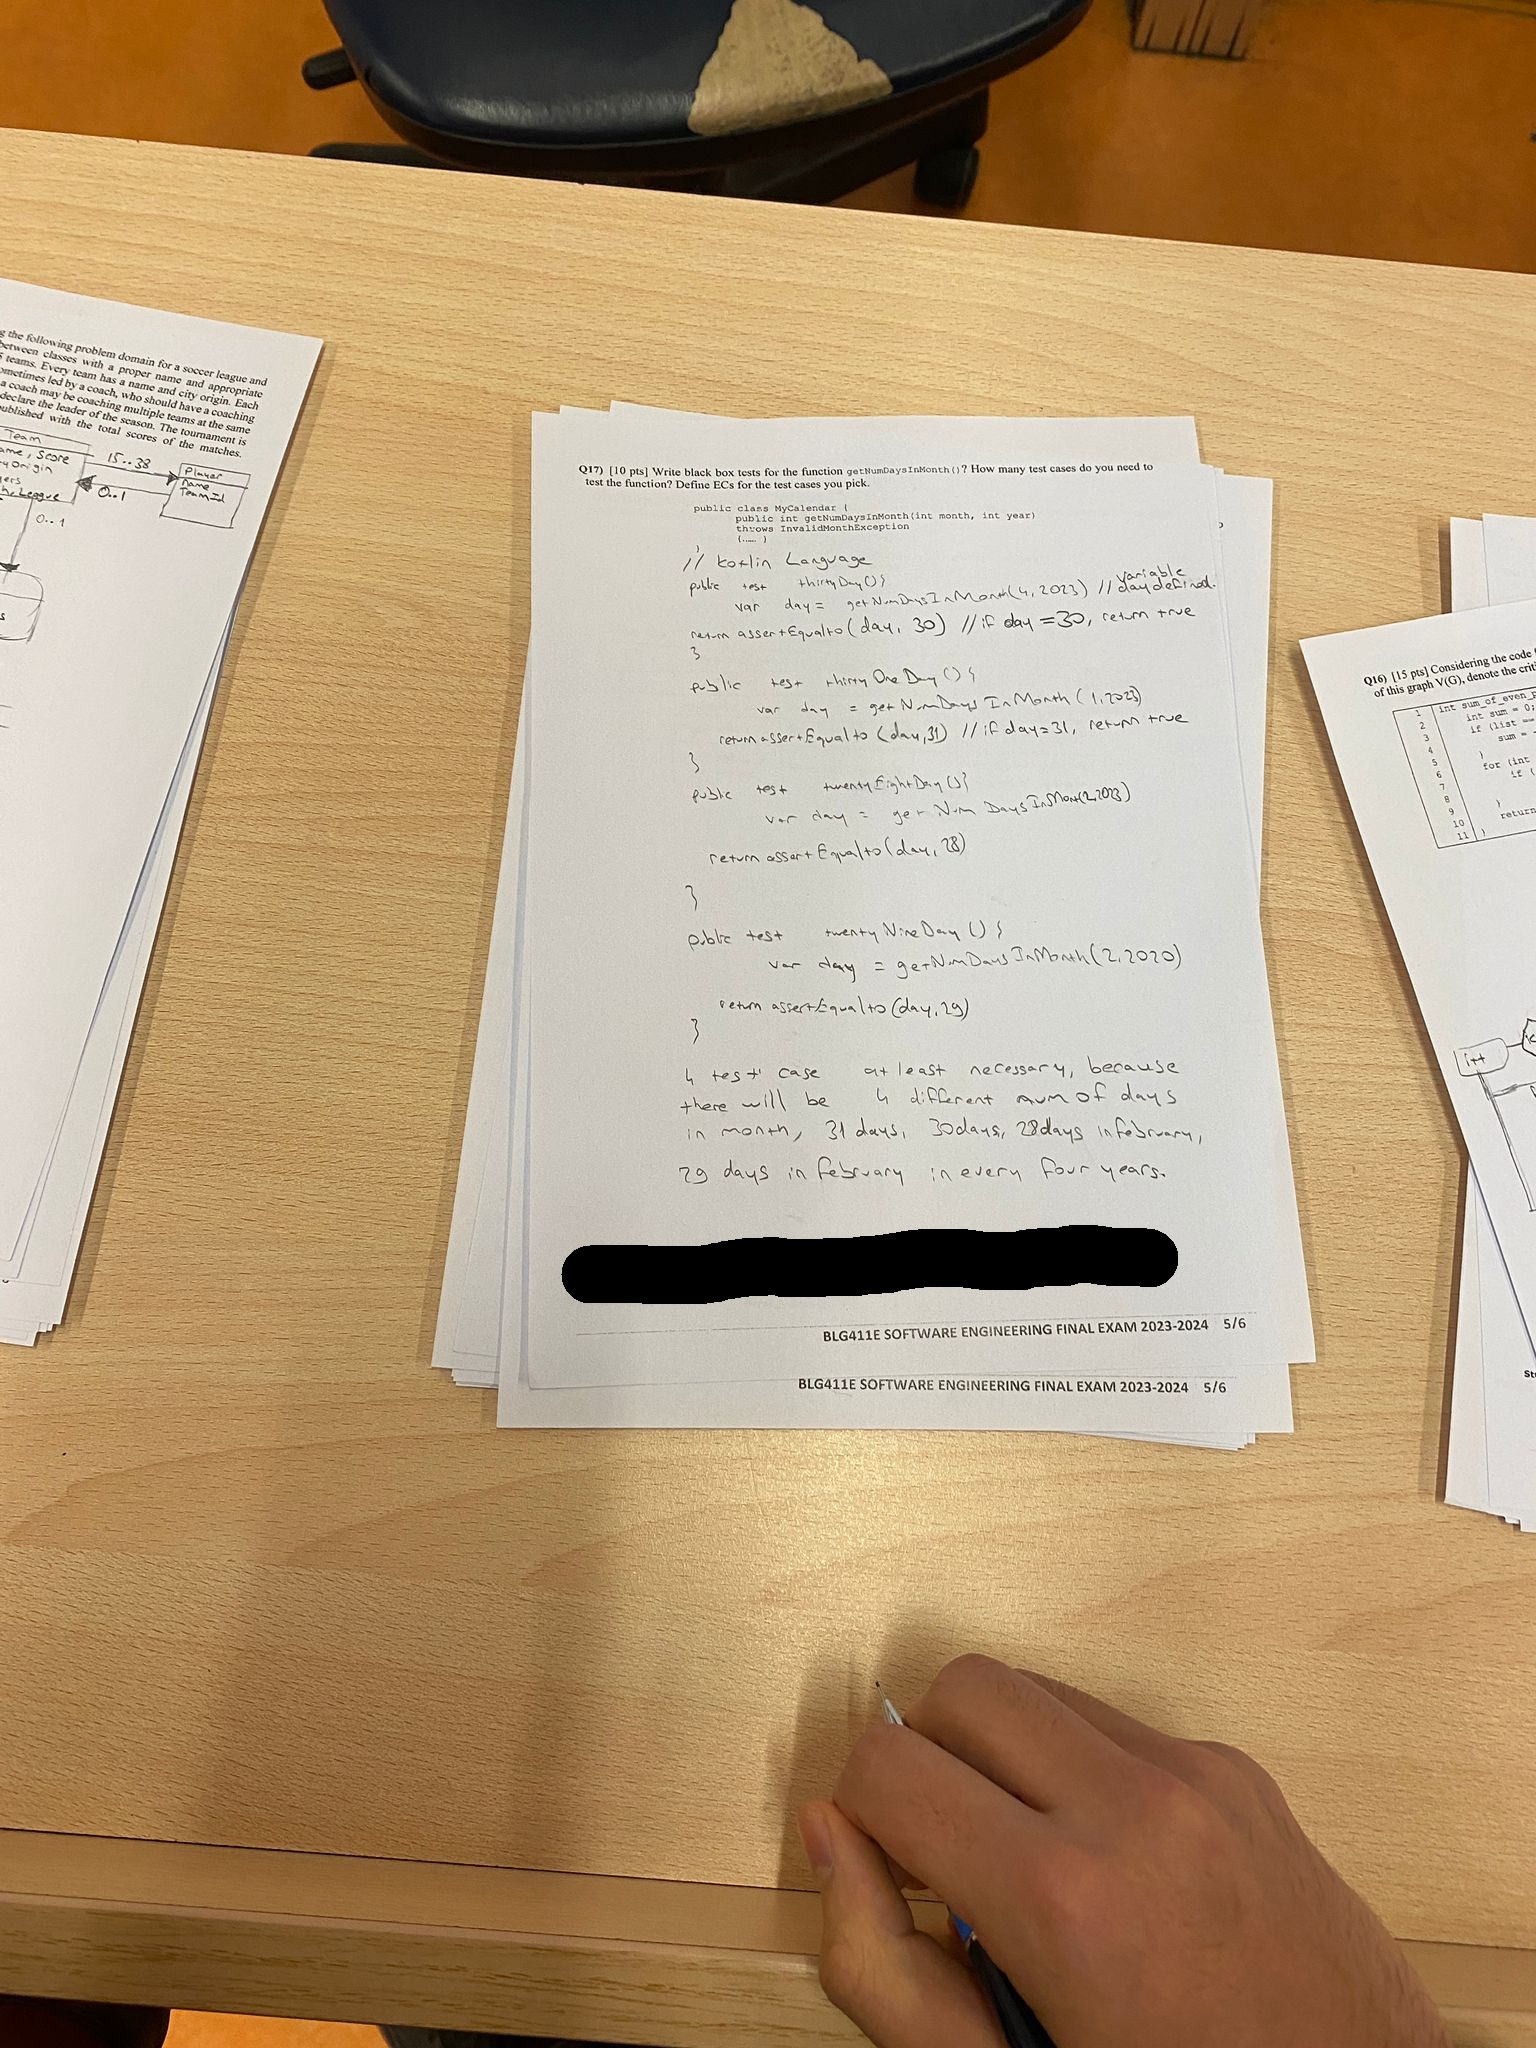 g the following problem domain for a soccer league and
between classes with a proper name and appropriate
5 teams. Every team has a name and city origin. Each
ometimes led by a coach, who should have a coaching
a coach may be coaching multiple teams at the same
declare the leader of the season. The tournament is
published with the total scores of the matches.
Team
ame, Score
yOrigin
League
15..38
0..1
0..1
Player
name
TeamId
Q17) [10 pts] Write black box tests for the function getNumDaysInMonth()? How many test cases do you need to
test the function? Define ECs for the test cases you pick.
public class MyCalendar {
public int getNumDaysInMonth(int month, int year)
throws InvalidMonthException
{..... }
}
// Kotlin Language
public test thirtyDay(){
var day = getNumDaysInMonth(4, 2023) // variable day defined.
return assertEqualto(day, 30) // if day = 30, return true
}
public test thirtyOneDay(){
var day = getNumDaysInMonth(1,2023)
return assertEqualto(day,31) // if day=31, return true
}
public test twentyEightDay(){
var day = getNumDaysInMont(2,2023)
return assertEqualto(day,28)
}
public test twentyNineDay(){
var day = getNumDaysInMonth(2,2020)
return assertEqualto(day,29)
}
4 test case at least necessary, because
there will be 4 different num of days
in month, 31 days, 30days, 28days in february,
29 days in february in every four years.
BLG411E SOFTWARE ENGINEERING FINAL EXAM 2023-2024 5/6
BLG411E SOFTWARE ENGINEERING FINAL EXAM 2023-2024 5/6
Q16) [15 pts] Considering the code
of this graph V(G), denote the crit
1 int sum_of_even_p
2 int sum = 0;
3 if (list ==
4 sum = -
5 }
6 for (int
7 if (
8
9 }
10 return
11 }
i++